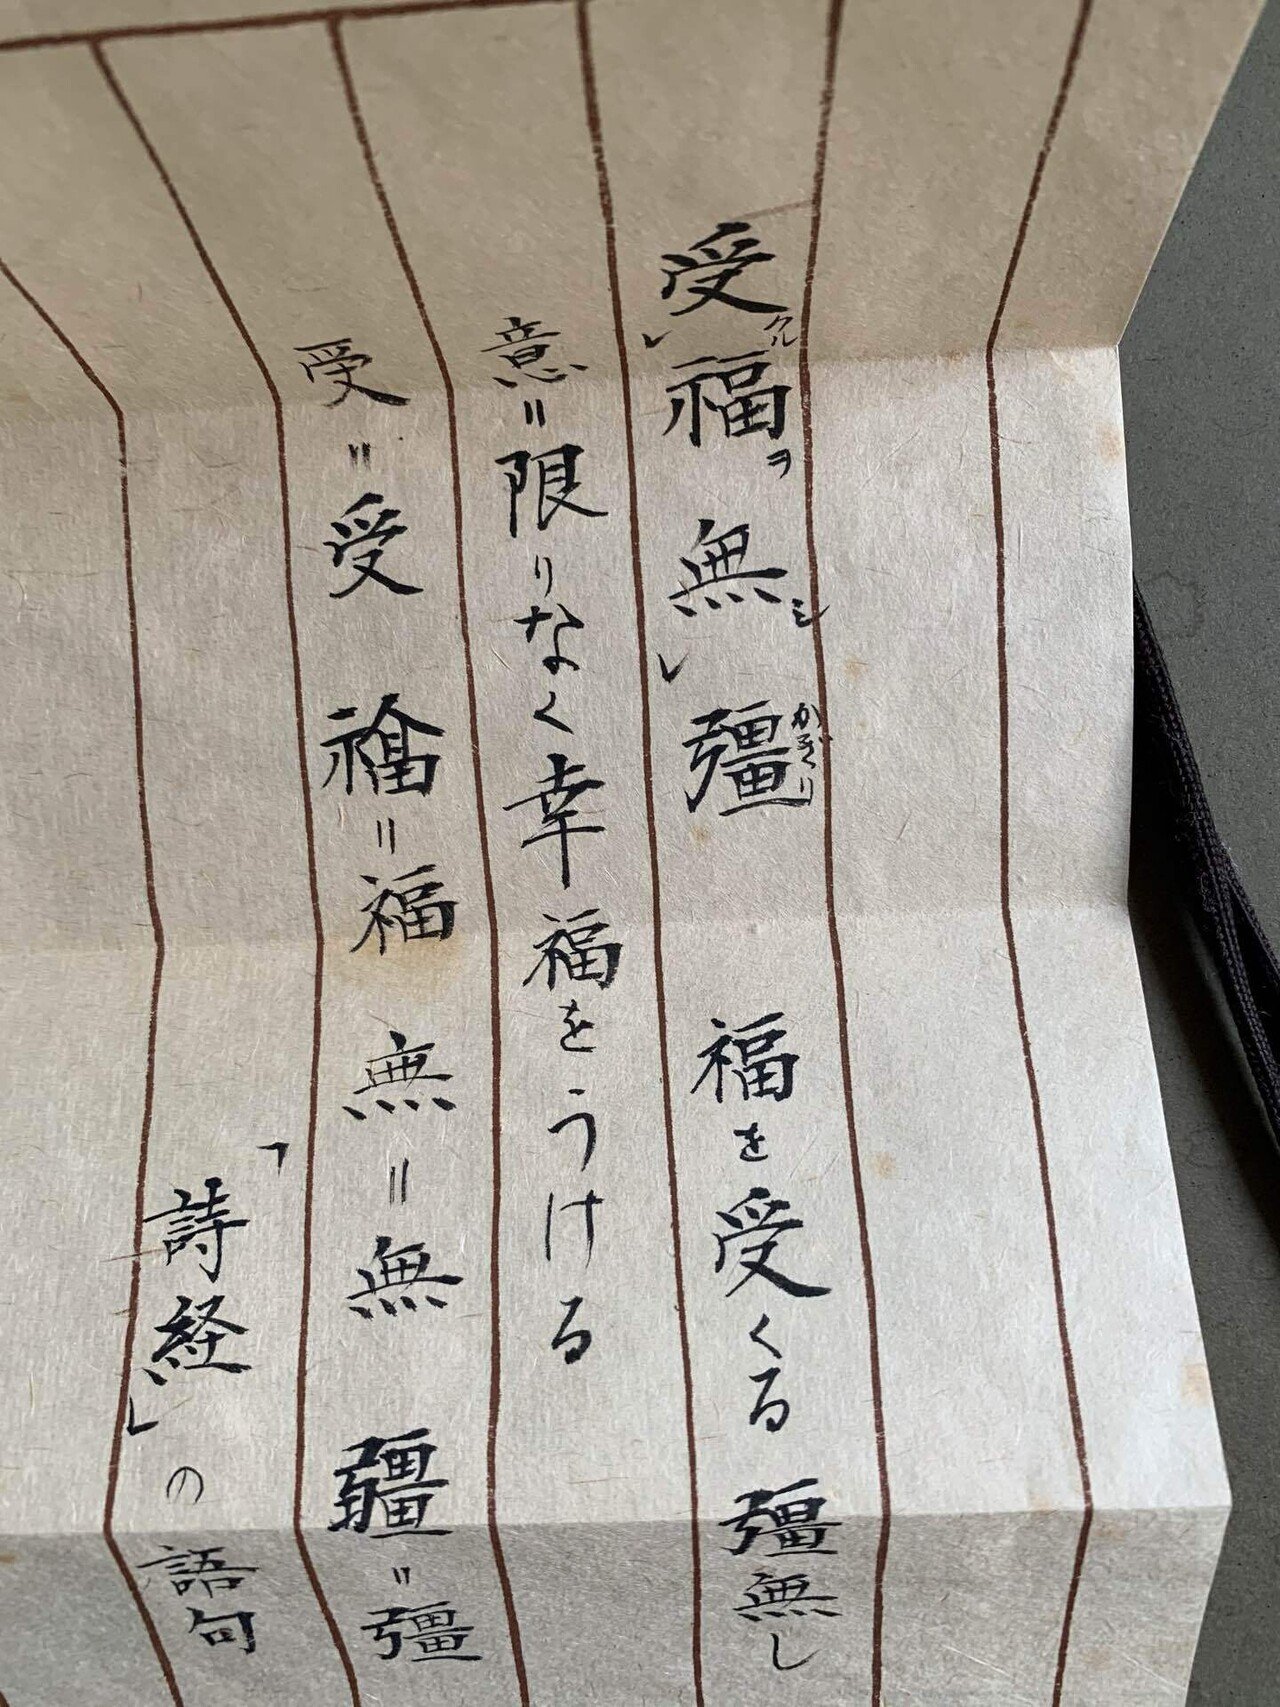 受クルレ福ヲ無シレ彊かぎり 福を受くる彊無し
意=限りなく幸福をうける
受=受 福=福 無=無 疆=彊
「詩経」の語句